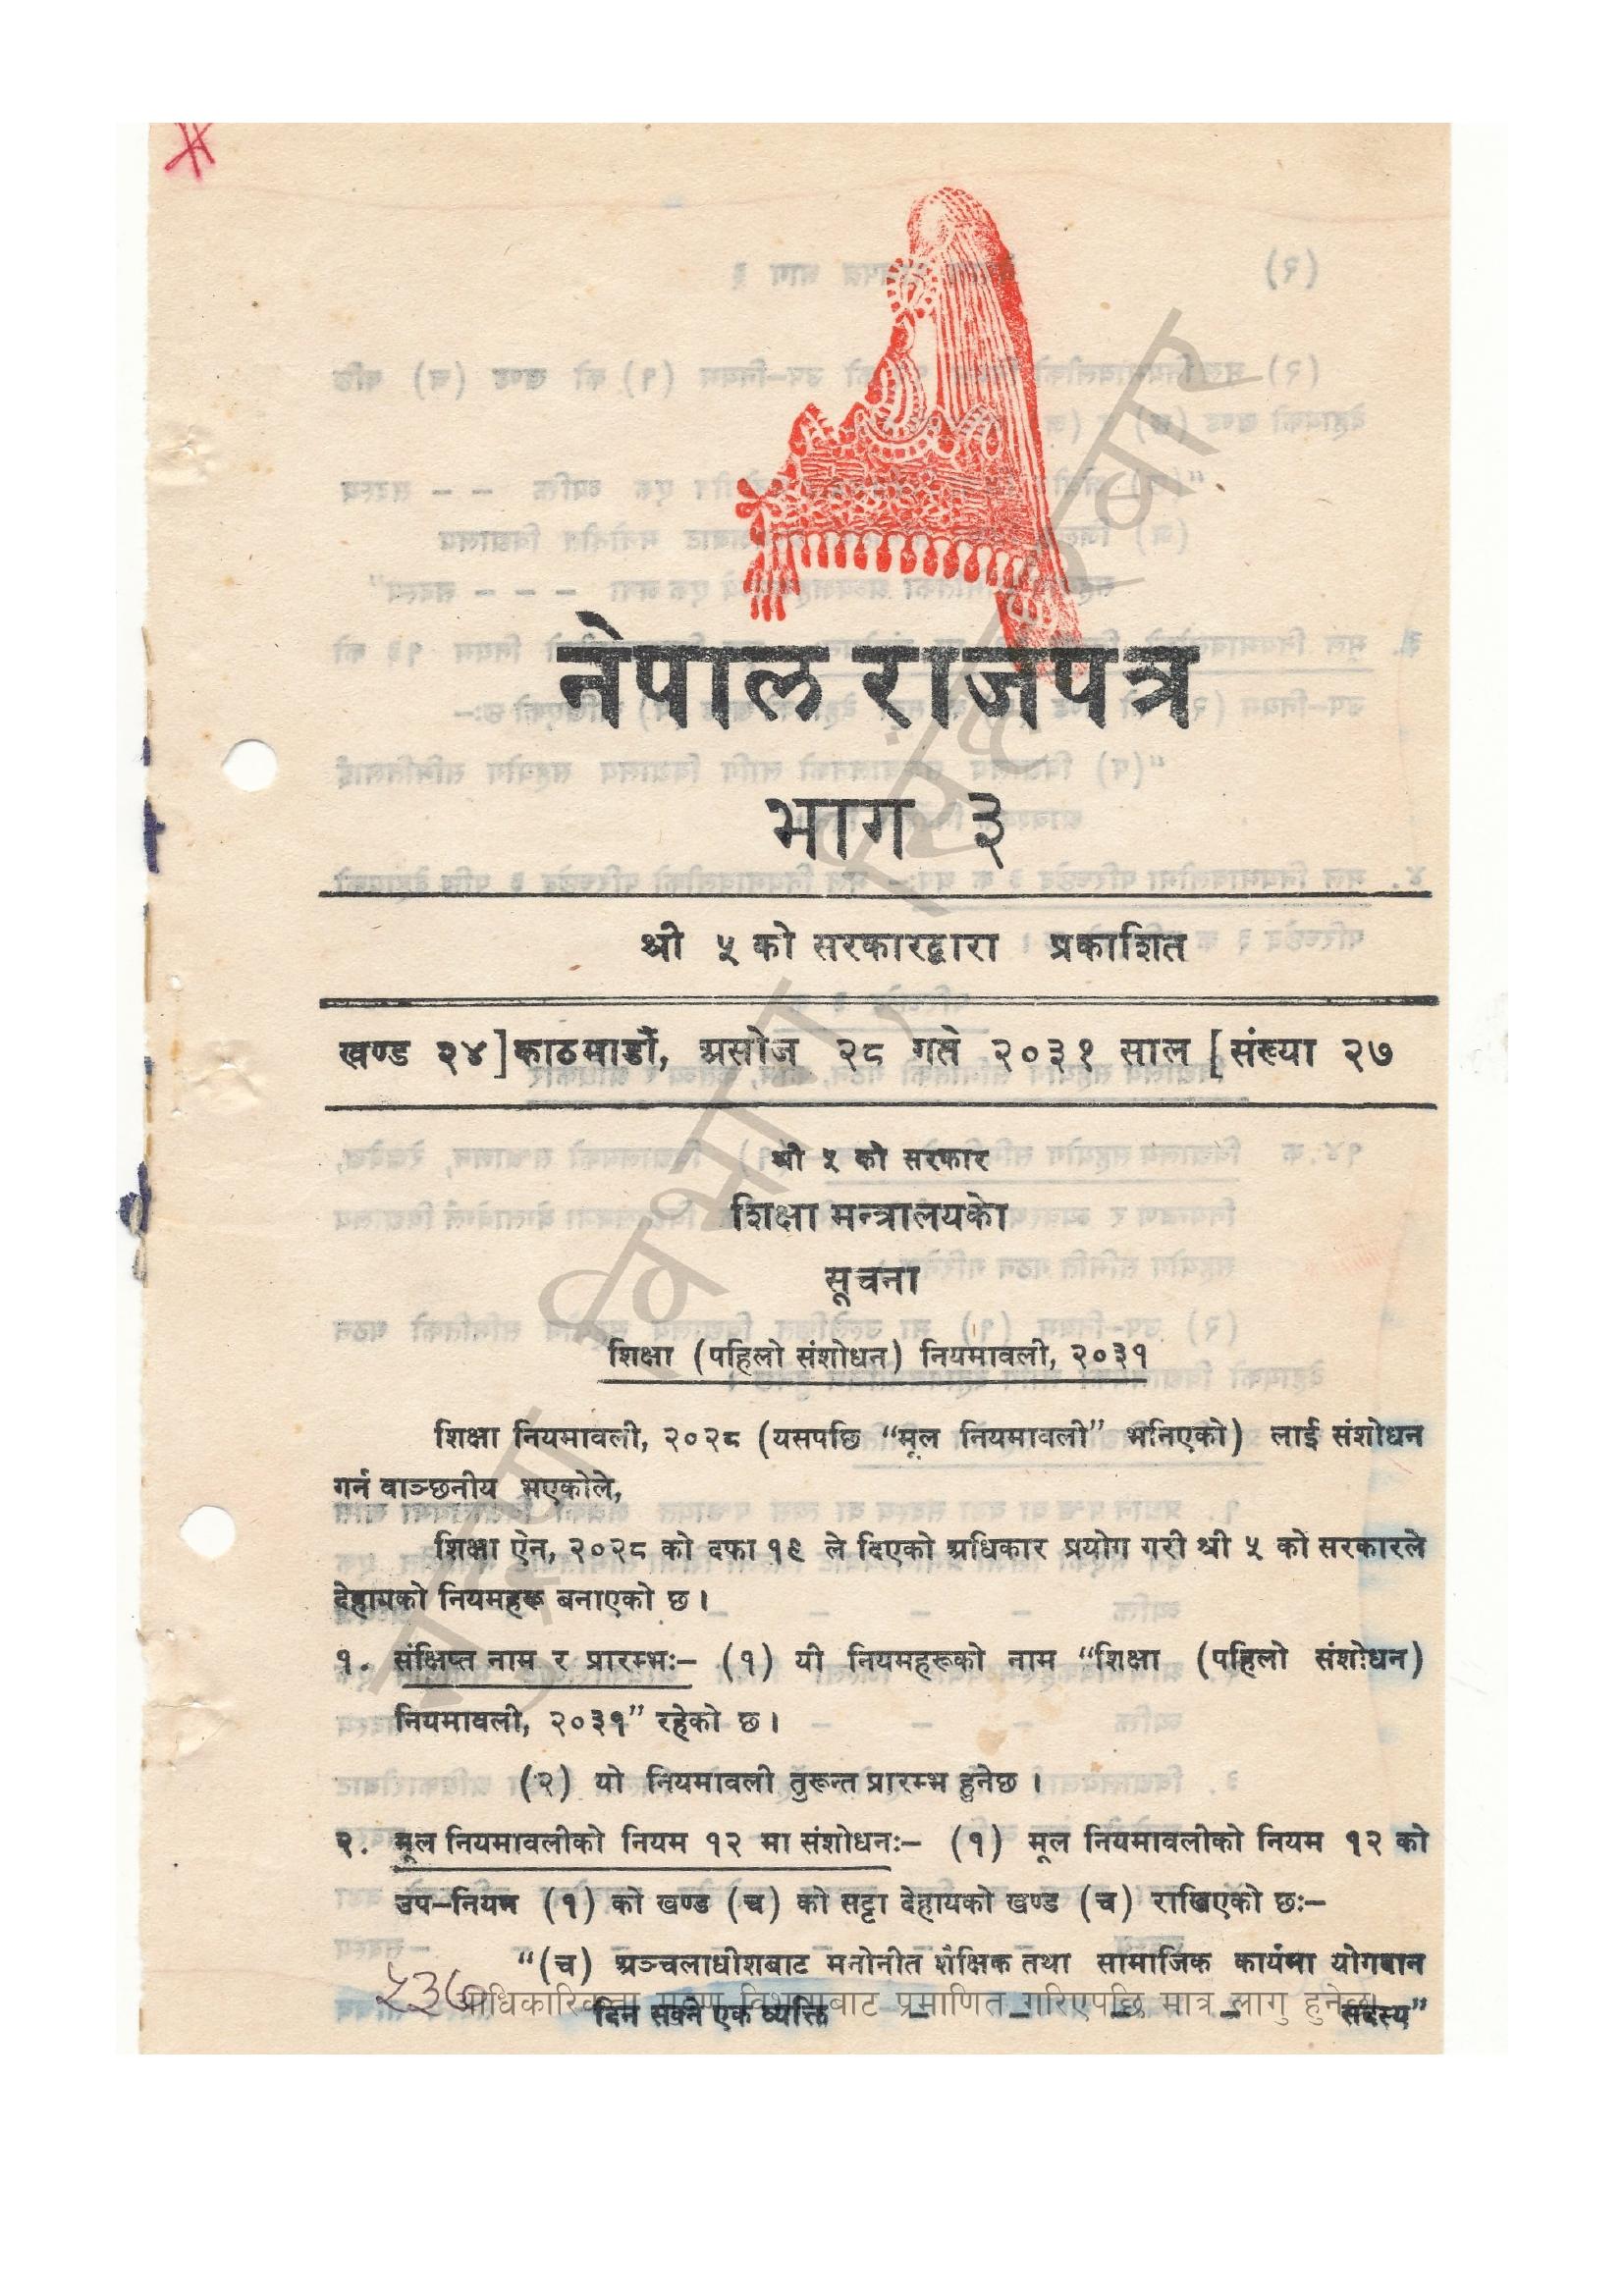 नेपाल राजपत्र
भाग ३
श्री ५ को सरकारद्वारा प्रकाशित
खण्ड २४] काठमाडौं, असोज २८ गते २०३१ साल [संख्या २७
श्री ५ को सरकार
शिक्षा मन्त्रालयको
सूचना
शिक्षा (पहिलो संशोधन) नियमावली, २०३१
शिक्षा नियमावली, २०२८ (यसपछि “मूल नियमावली” भनिएको) लाई संशोधन
गर्न वाञ्छनीय भएकोले,
शिक्षा ऐन, २०२८ को दफा १९ ले दिएको अधिकार प्रयोग गरी श्री ५ को सरकारले
देहायको नियमहरू बनाएको छ ।
१. संक्षिप्त नाम र प्रारम्भः– (१) यी नियमहरूको नाम “शिक्षा (पहिलो संशोधन)
नियमावली, २०३१” रहेको छ ।
(२) यो नियमावली तुरून्त प्रारम्भ हुनेछ ।
२. मूल नियमावलीको नियम १२ मा संशोधनः– (१) मूल नियमावलीको नियम १२ को
उप–नियम (१) को खण्ड (च) को सट्टा देहायको खण्ड (च) राखिएको छः–
“(च) अञ्चलाधीशबाट मनोनीत शैक्षिक तथा सामाजिक कार्यमा योगदान
दिन सक्ने एक व्यक्ति – – – – सदस्य”
आधिकारिकता मुद्रण विभागबाट प्रमाणित गरिएपछि मात्र लागु हुनेछ।